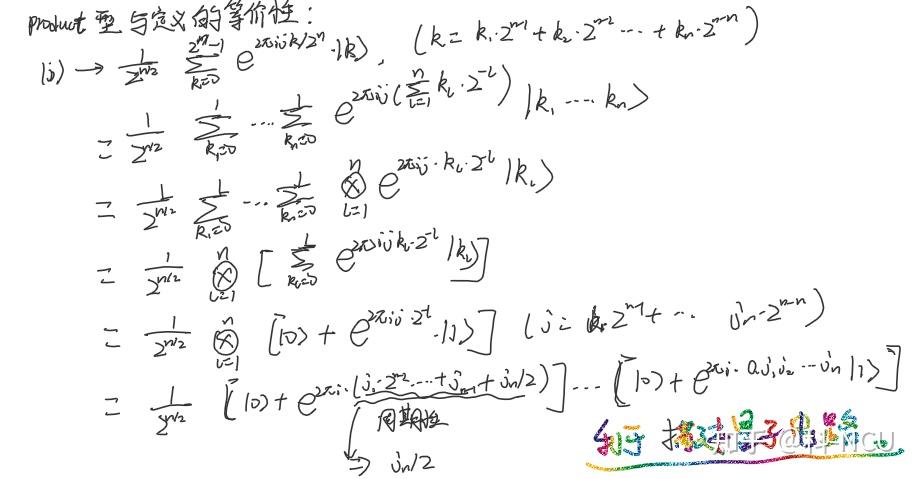 product型与定义的等价性：
|j⟩ → 1/2^{n/2} Σ_{k=0}^{2^n-1} e^{2πijk/2^n}·|k⟩, (k = k₁·2^{n-1} + k₂·2^{n-2} ··· + kₙ·2^{n-n})
= 1/2^{n/2} Σ_{k₁=0}^{1} ··· Σ_{kₙ=0}^{1} e^{2πij(Σ_{l=1}^{n} k_l·2^{-l})} |k₁ ···· kₙ⟩
= 1/2^{n/2} Σ_{k₁=0}^{1} ··· Σ_{kₙ=0}^{1} ⊗_{l=1}^{n} e^{2πij·k_l·2^{-l}} |k_l⟩
= 1/2^{n/2} ⊗_{l=1}^{n} [Σ_{k_l=0}^{1} e^{2πijk_l·2^{-l}} |k_l⟩]
= 1/2^{n/2} ⊗_{l=1}^{n} [|0⟩ + e^{2πij·2^{-l}}·|1⟩] (j = 2^{n-1} + ··· jₙ·2^{n-n})
= 1/2^{n/2} [|0⟩ + e^{2πi·(j₁·2^{n-2} ···· + j_{n-1} + jₙ/2)}] ··· [|0⟩ + e^{2πi·0.j₁j₂ ··· jₙ} |1⟩]
周期性
⇒ jₙ/2
利于 量子电路
知乎 NCU